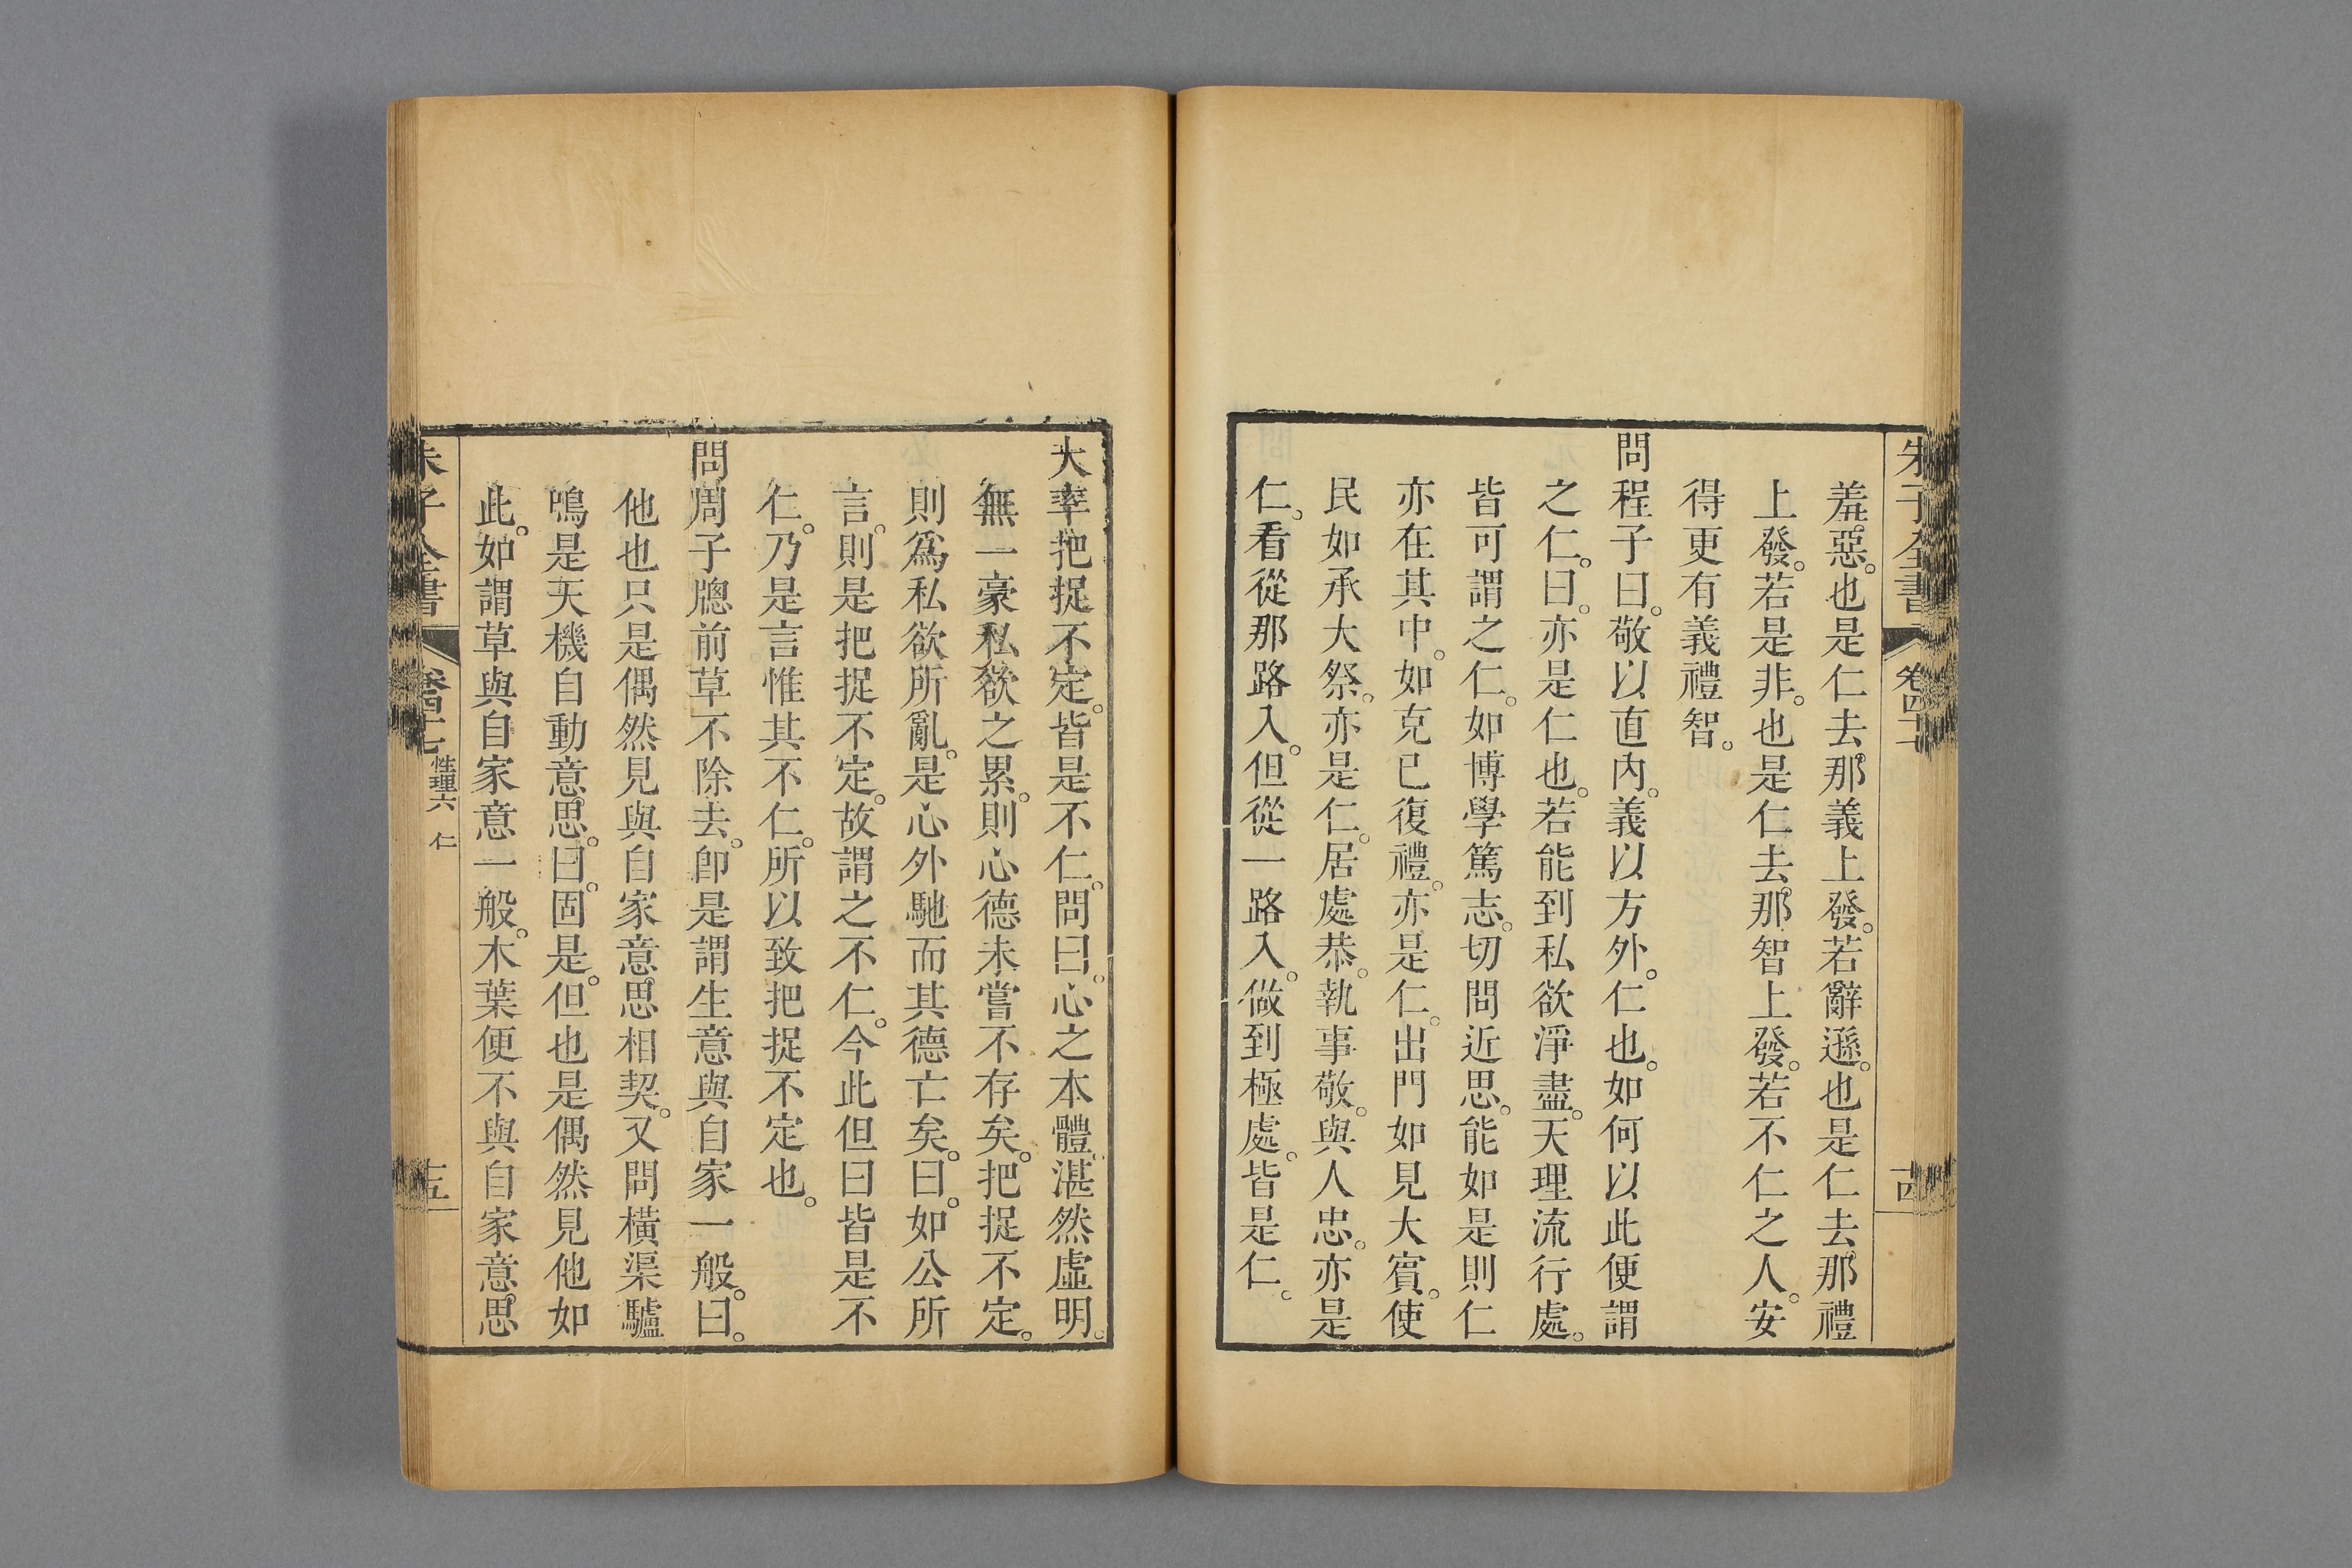 朱子全書
卷四十七
十四
羞惡。也是仁去那義上發。若辭遜。也是仁去那禮
上發。若是非。也是仁去那智上發。若不仁之人。安
得更有義禮智。
問程子曰。敬以直內。義以方外。仁也。如何以此便謂
之仁。曰。亦是仁也。若能到私欲淨盡。天理流行處。
皆可謂之仁。如博學篤志。切問近思。能如是則仁
亦在其中。如克已復禮。亦是仁。出門如見大賓。使
民如承大祭。亦是仁。居處恭。執事敬。與人忠。亦是
仁。看從那路入。但從一路入。做到極處。皆是仁。
大率把捉不定。皆是不仁。問曰。心之本體。湛然虛明。
無一豪私欲之累。則心德未嘗不存矣。把捉不定。
則爲私欲所亂。是心外馳而其德亡矣。曰。如公所
言。則是把捉不定。故謂之不仁。今此但曰皆是不
仁。乃是言惟其不仁。所以致把捉不定也。
問周子牕前草不除去。卽是謂生意與自家一般。曰。
他也只是偶然見與自家意思相契。又問橫渠驢
鳴是天機自動意思。曰。固是。但也是偶然見他如
此。如謂草與自家意一般。木葉便不與自家意思
朱子全書
卷四十七
性理六 仁
十五